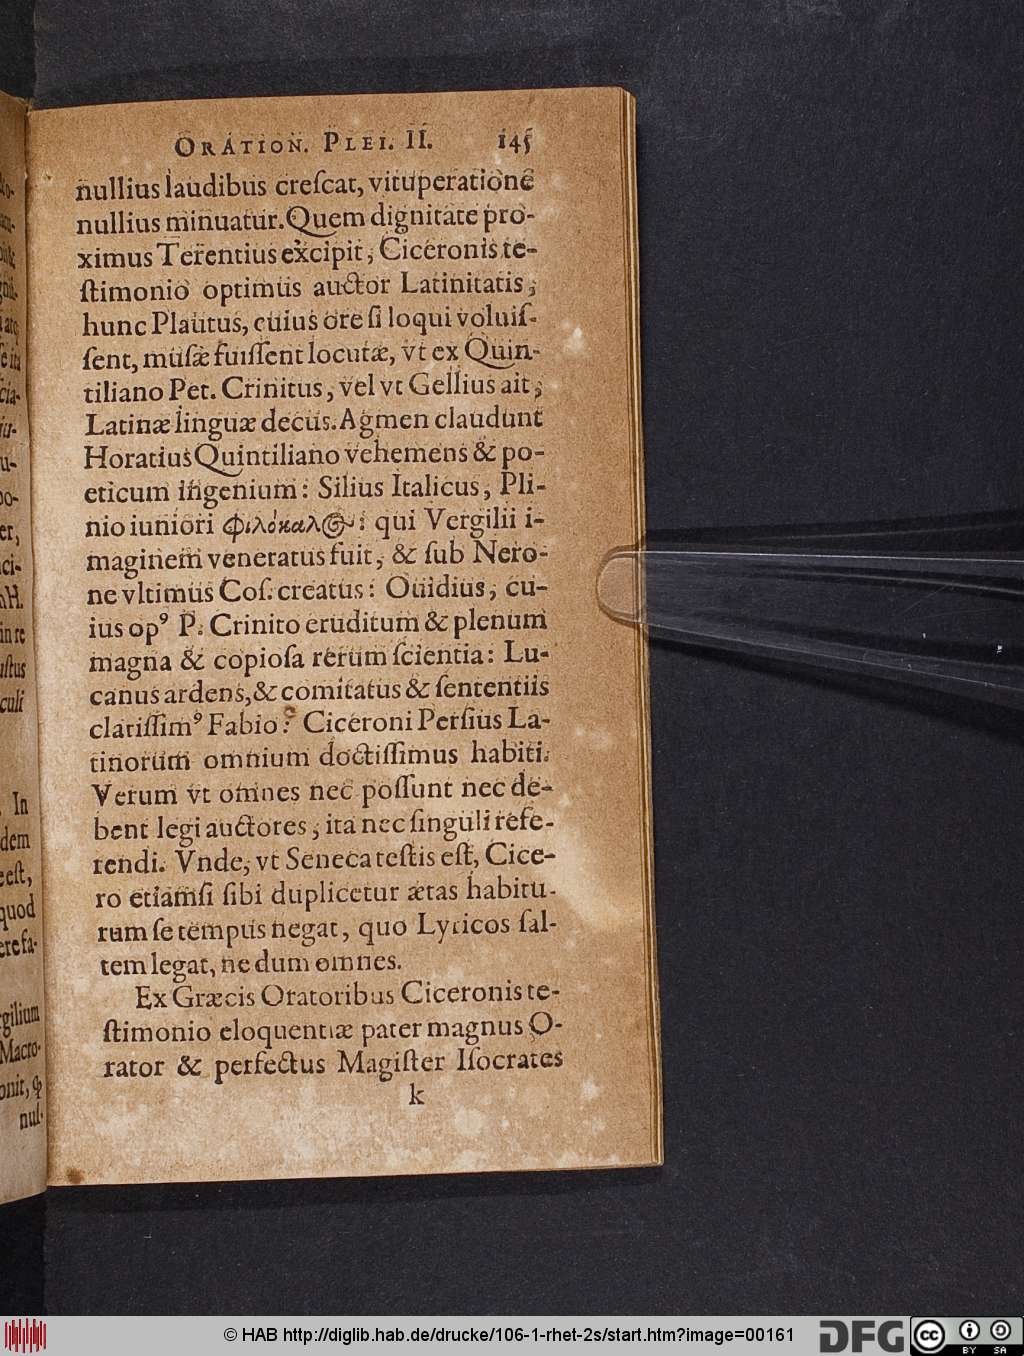 ORATION. PLEI. II. 145
nullius laudibus creſcat, vituperatione
nullius minuatur. Quem dignitate pro-
ximus Terentius excipit, Ciceronis te-
ſtimonio optimus auctor Latinitatis,
hunc Plautus, cuius ore ſi loqui voluiſ-
ſent, muſæ fuiſſent locutæ, vt ex Quin-
tiliano Pet. Crinitus, vel vt Gellius ait,
Latinæ linguæ decus. Agmen claudunt
Horatius Quintiliano vehemens & po-
eticum ingenium: Silius Italicus, Pli-
nio iuniori φιλόκαλος: qui Vergilii i-
maginem veneratus fuit, & ſub Nero-
ne vltimus Coſ. creatus: Ouidius, cu-
ius opꝰ P. Crinito eruditum & plenum
magna & copioſa rerum ſcientia: Lu-
canus ardens, & comitatus & ſententiis
clariſſimꝰ Fabio: Ciceroni Perſius La-
tinorum omnium doctiſſimus habiti.
Verum vt omnes nec poſſunt nec de-
bent legi auctores, ita nec ſinguli refe-
rendi. Vnde, vt Seneca teſtis eſt, Cice-
ro etiamſi ſibi duplicetur ætas habitu-
rum ſe tempus negat, quo Lyricos ſal-
tem legat, ne dum omnes.
Ex Græcis Oratoribus Ciceronis te-
ſtimonio eloquentiæ pater magnus O-
rator & perfectus Magiſter Iſocrates
k
In
dem
eſt,
quod
ere fa-
gilium
Macro-
nul-
© HAB http://diglib.hab.de/drucke/106-1-rhet-2s/start.htm?image=00161
DFG
cc
BY SA